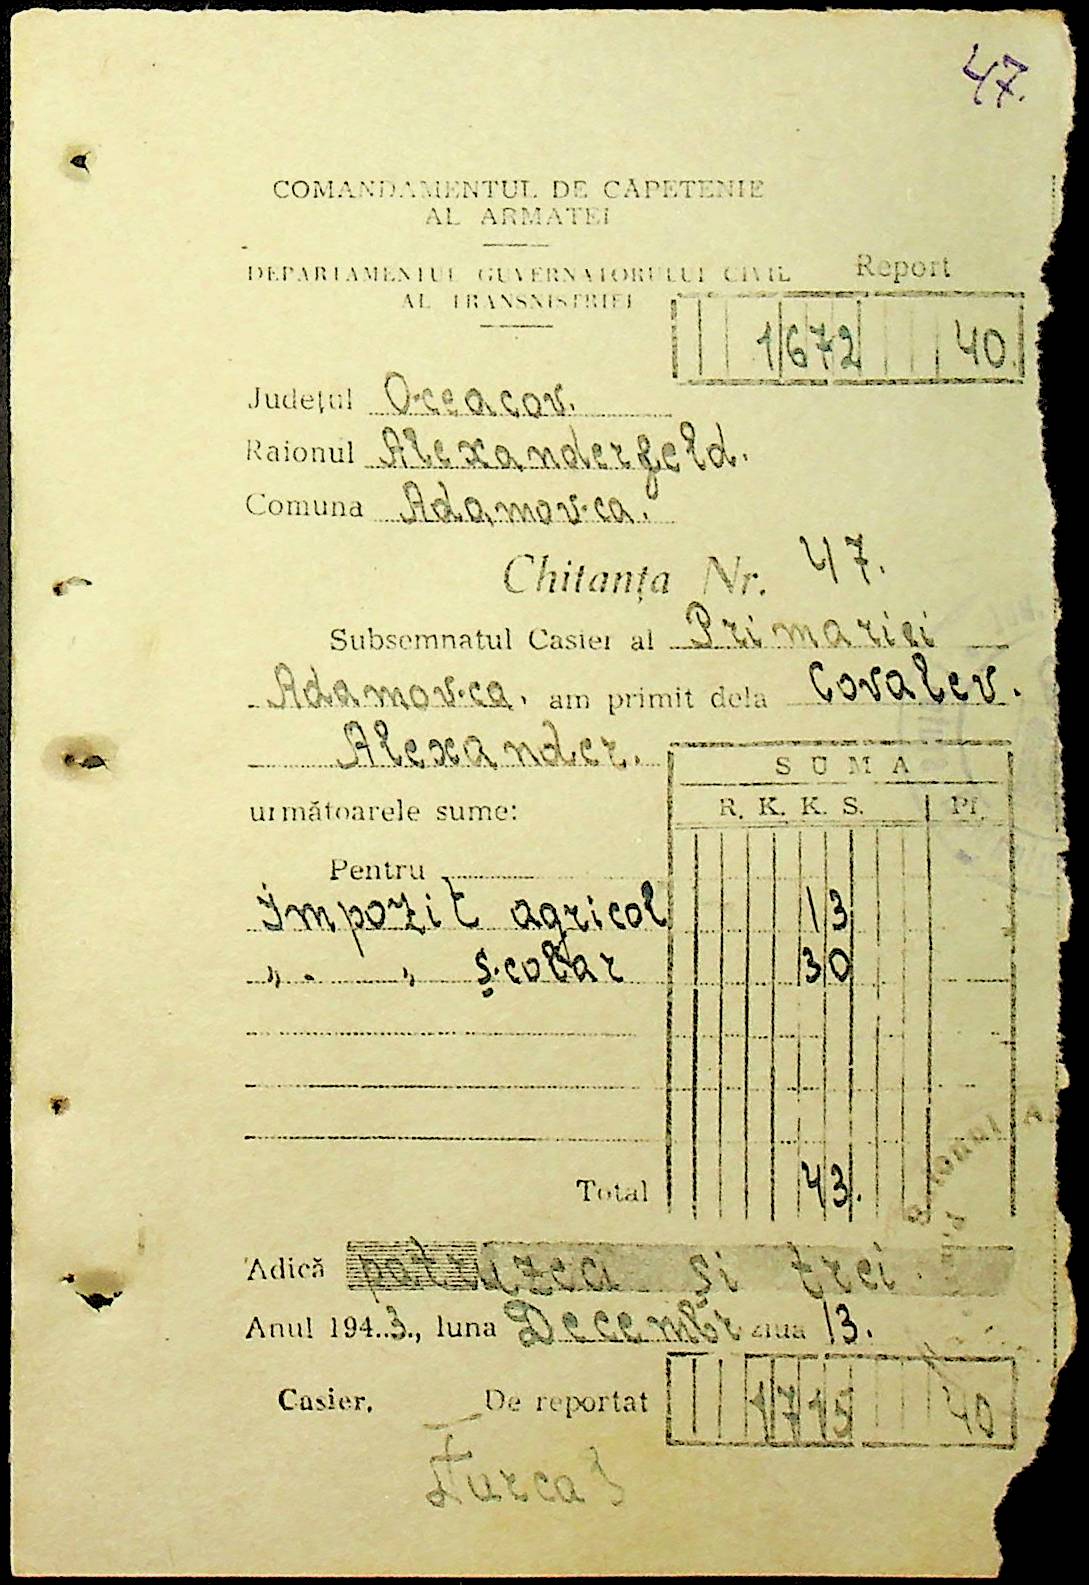 47.
COMANDAMENTUL DE CĂPETENIE
AL ARMATEI
DEPARTAMENTUL GUVERNATORULUI CIVIL
AL TRANSNISTRIEI
Report
1672 40.
Județul Oceacov.
Raionul Alexanderfeld.
Comuna Adamovca.
Chitanța Nr. 47.
Subsemnatul Casier al Primariei
Adamovca, am primit dela Covalev.
Alexander.
următoarele sume:
SUMA
R. K. K. S. Pf.
Pentru
Impozit agricol 13
„ „ școlar 30
Total 43.
Adică patruzeci și trei.
Anul 194.3., luna Decembr ziua 13.
Casier, De reportat 1715 40